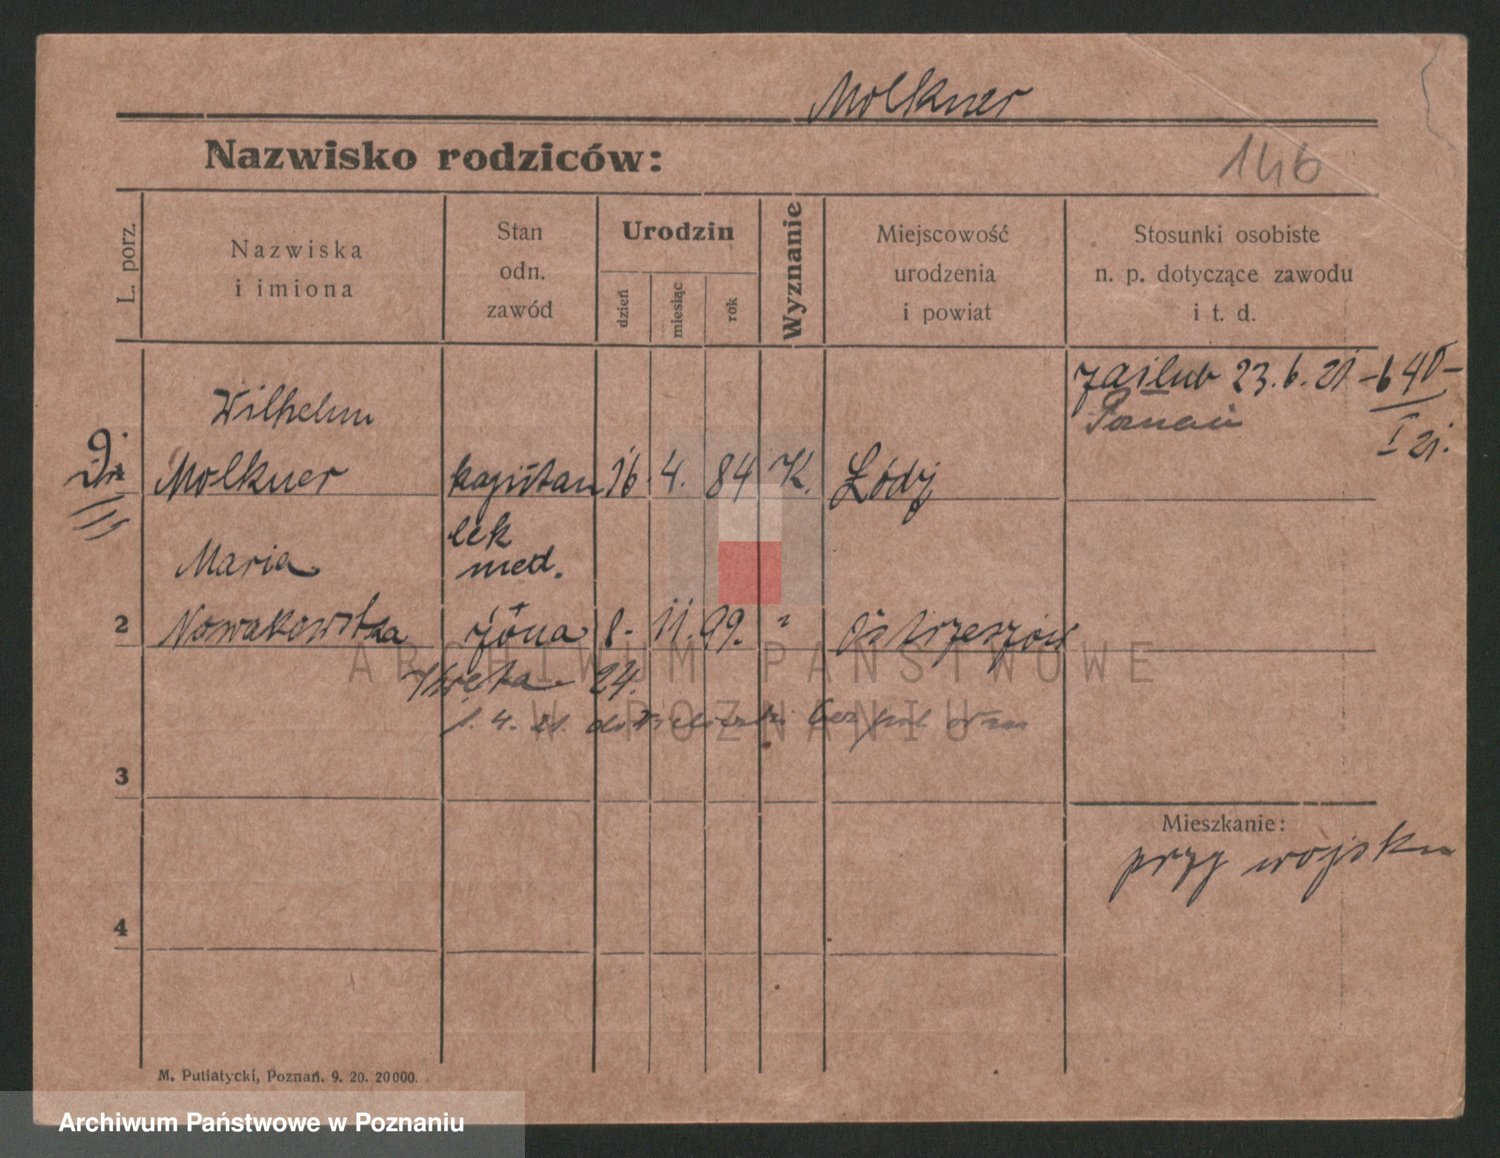 Molkner
Nazwisko rodziców:
146
L. porz.
Nazwiska
i imiona
Stan
odn.
zawód
Urodzin
dzień
miesiąc
rok
Wyznanie
Miejscowość
urodzenia
i powiat
Stosunki osobiste
n. p. dotyczące zawodu
i t. d.
zaślub 23.6.21 - 640 -
Poznań I 21.
Wilhelm
Molkner kapitan 16. 4. 84 K. Łódź
lek
med.
Maria
2 Nowakowska żona 8. 11. 99. " Ostrzeszów
24.
1. 4. 21.
3
Mieszkanie:
przy wojsku
4
M. Putiatycki, Poznań. 9. 20. 20000.
ARCHIWUM PAŃSTWOWE
W POZNANIU
Archiwum Państwowe w Poznaniu